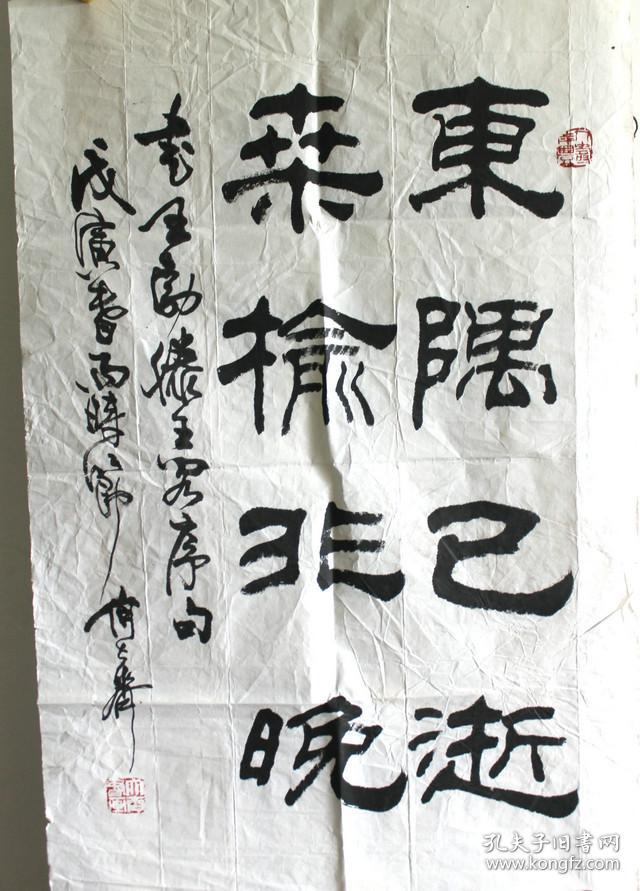 東隅已逝
桑榆非晚
書王勃滕王閣序句
戊寅春雨時節
孔夫子旧书网
www.kongfz.com